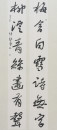 梅含白雪詩無字
柳青絲畫有聲